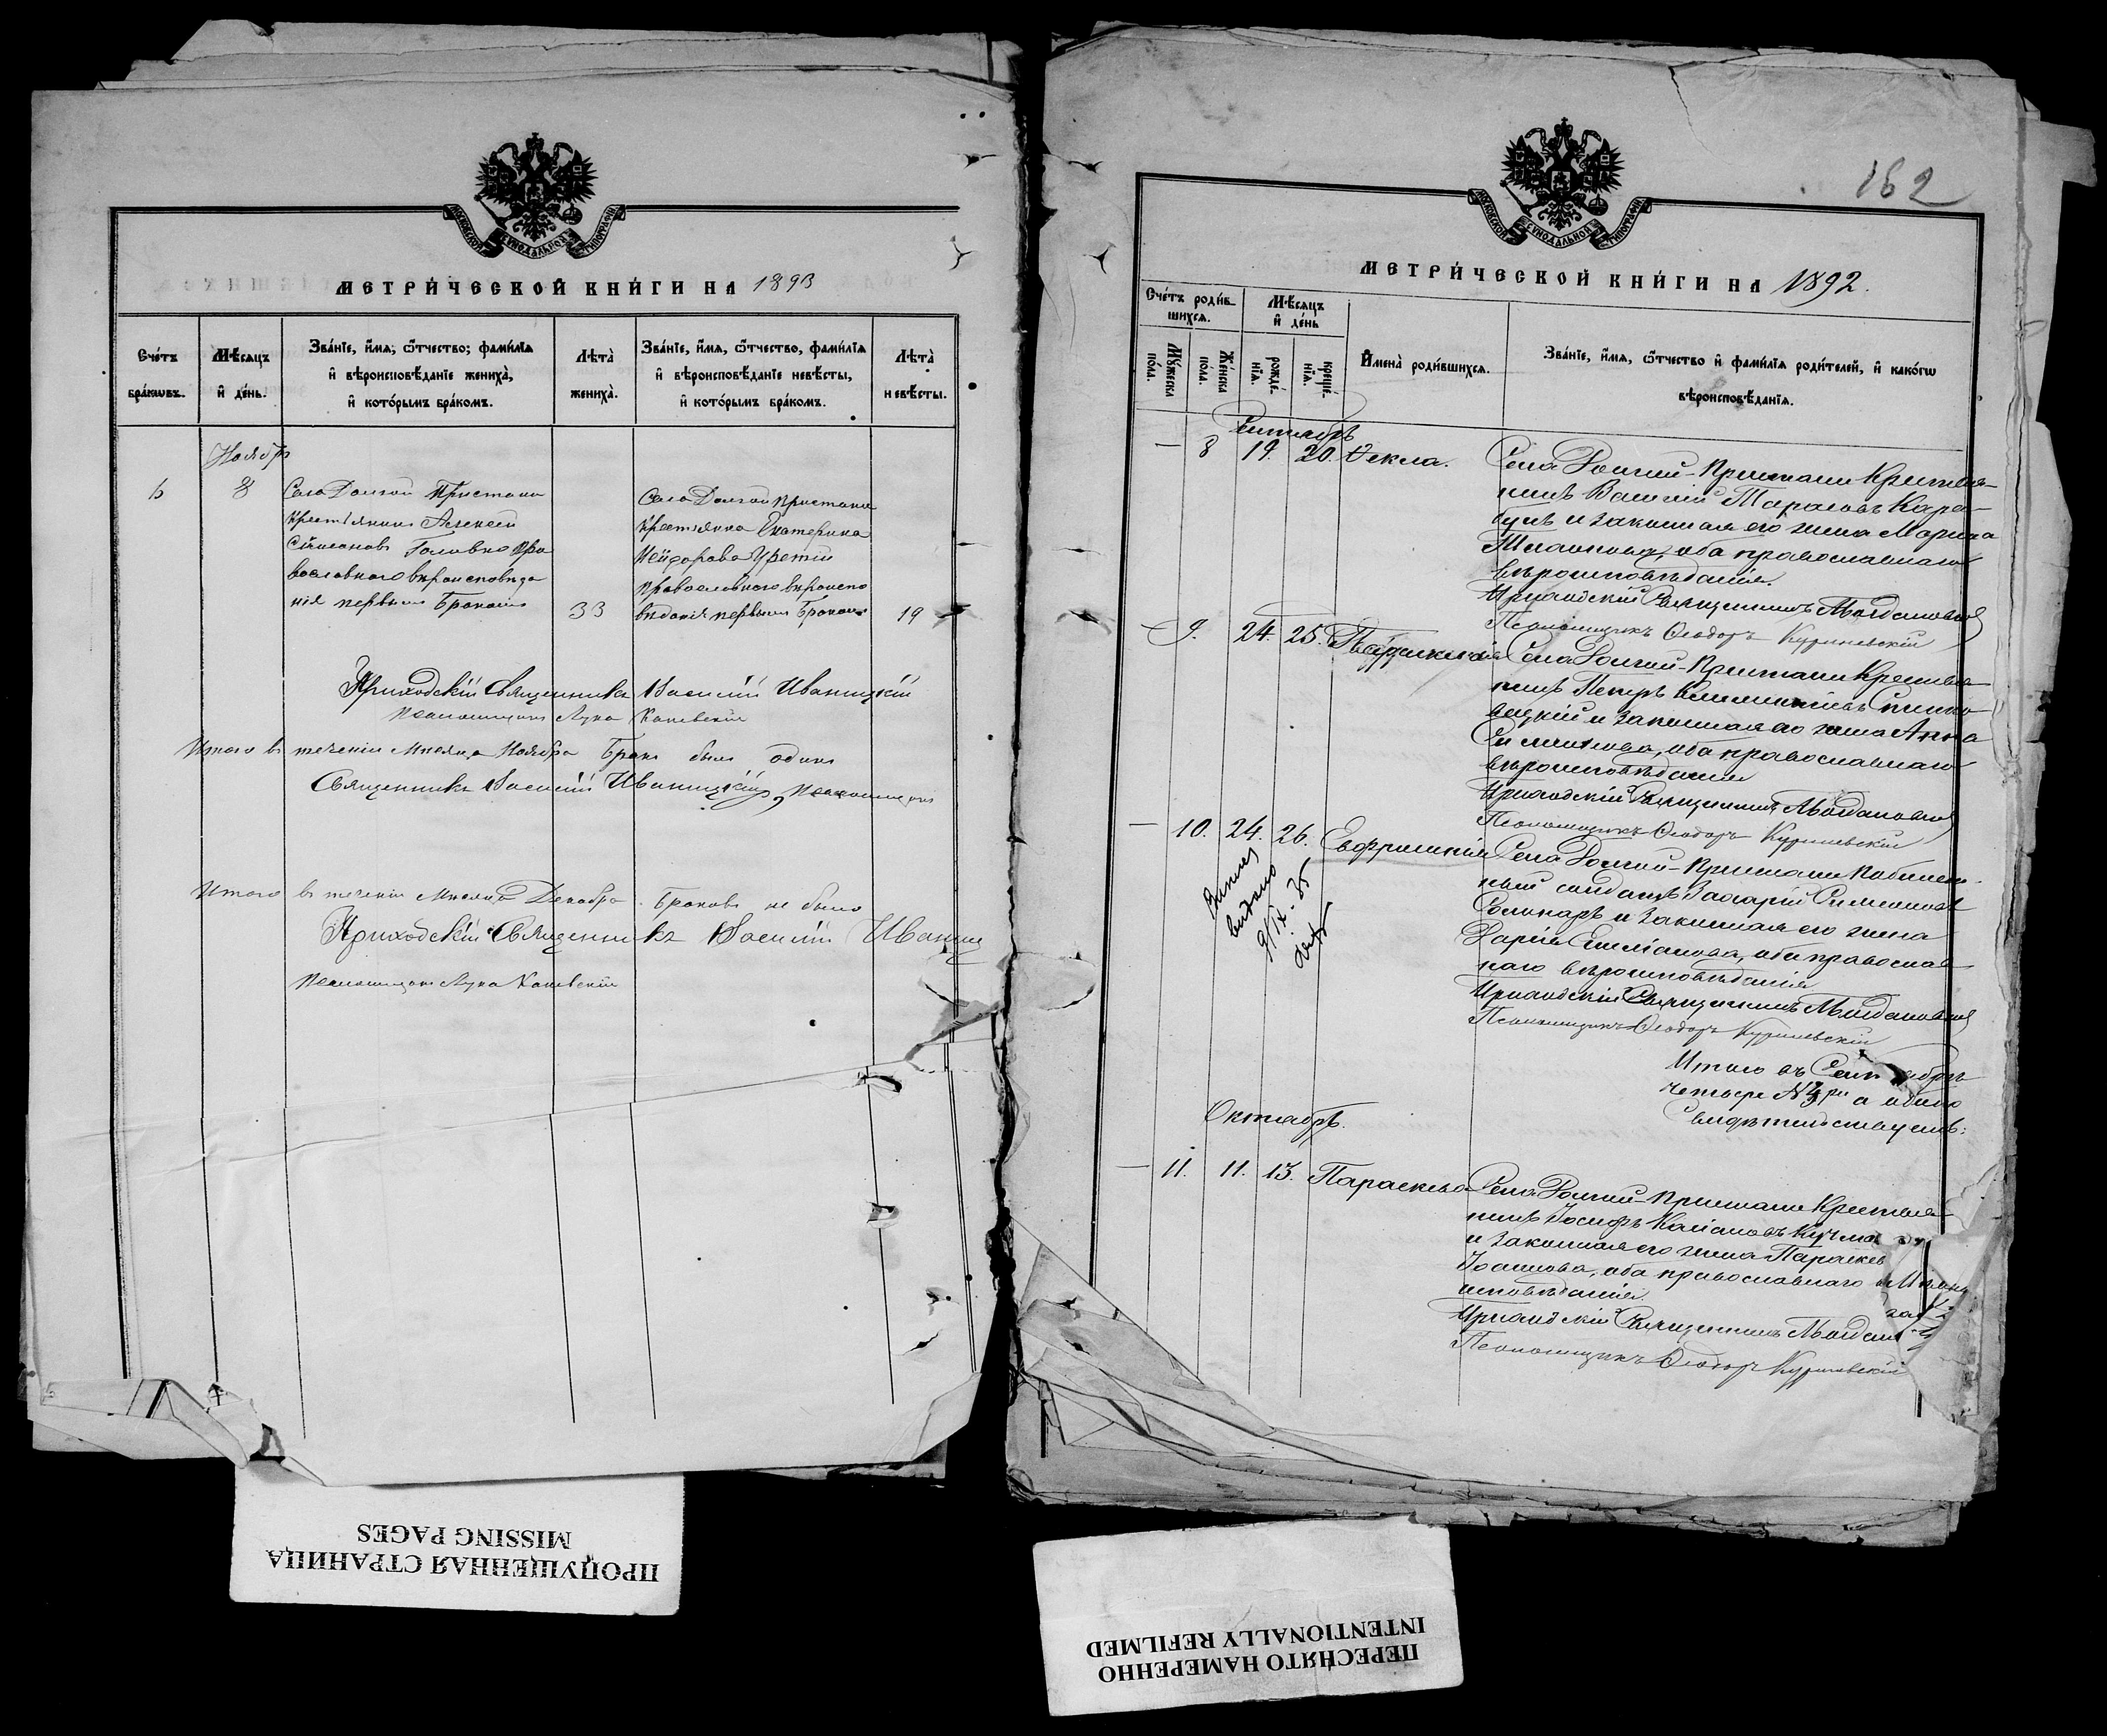 МОСКОВСКОЙ СУНОДАЛЬНОЙ ТИПОГРАФІИ
МЕТРИ́ЧЕСКОЙ КНИ́ГИ НА 1893
Сче́тъ бра́ковъ.
Мѣ́сяцъ и де́нь.
Зва́нїе, и́мя, ѻ҆́тчество, фами́лїя и вѣроисповѣ́данїе жениха̀, и кото́рымъ бра́комъ.
Лѣта̀ жениха̀.
Зва́нїе, и́мя, ѻ҆́тчество, фами́лїя и вѣроисповѣ́данїе невѣ́сты, и кото́рымъ бра́комъ.
Лѣта̀ невѣ́сты.
Ноябрь
6 8
Села Долгой Пристани
Крестьянинъ Алексей
Симеоновъ Головко пра
вославного вероисповеда
нія первымъ Бракомъ
33
Села Долгой Пристани
Крестьянка Екатерина
православного вероиспо
веданія первымъ Бракомъ
19
Приходскій Священникъ Василій Иваницкій
Псаломщикъ Лука Каневскій
Итого в теченіи Месяца Ноября Бракъ былъ одинъ
Священникъ Василій Иваницкій, Псаломщикъ
Итого в теченіи Месяца Декабря Браковъ не было
Приходскій Священникъ Василій Иваниц
Псаломщикъ Лука Каневскій
162
МОСКОВСКОЙ СУНОДАЛЬНОЙ ТИПОГРАФІИ
МЕТРИ́ЧЕСКОЙ КНИ́ГИ НА 1892.
Сче́тъ роди́вшихся.
Мѣ́сяцъ и де́нь
Мꙋ́жеска по́ла.
Же́нска по́ла.
рожде́нїя.
креще́нїя.
И҆мена̀ роди́вшихся.
Зва́нїе, и́мя, ѻ҆́тчество и фами́лїя роди́телей, и како́гѡ вѣроисповѣ́данїя.
Сентябрь
— 8 19. 20. Ѳекла.
Села Долгой-Пристани Крестья-
нинъ Василій Тарасовъ Кара-
бушъ и законная его жена Марина
оба православнаго
вѣроисповѣданія.
Приходскій Священникъ Молдановскій
Псаломщикъ Ѳеодоръ Куриневскій
— 9. 24. 25.
Села Долгой-Пристани Крестья-
нинъ Петръ
и законная его жена Анна
оба православнаго
вѣроисповѣданія
Приходскій Священникъ Молдановскій
Псаломщикъ Ѳеодоръ Куриневскій
— 10. 24. 26. Евфросинія
Села Долгой-Пристани
солдатъ Захарій Симеоновъ
и законная его жена
Дарія Емеліанова, оба православ
наго вѣроисповѣданія
Приходскій Священникъ Молдановскій
Псаломщикъ Ѳеодоръ Куриневскій
выдано
Итого въ Сентябрѣ
Октябрь.
— 11. 11. 13. Параскева
Села Долгой-Пристани Крестья
нинъ Іосифъ Касіановъ Кучма
и законная его жена Параскев
Іоаннова, оба православнаго
исповѣданія.
Приходскій Священникъ Молдан
Псаломщикъ Ѳеодоръ Куриневскій
ПРОПУЩЕННАЯ СТРАНИЦА
MISSING PAGES
ПЕРЕСНЯТО НАМЕРЕННО
INTENTIONALLY REFILMED